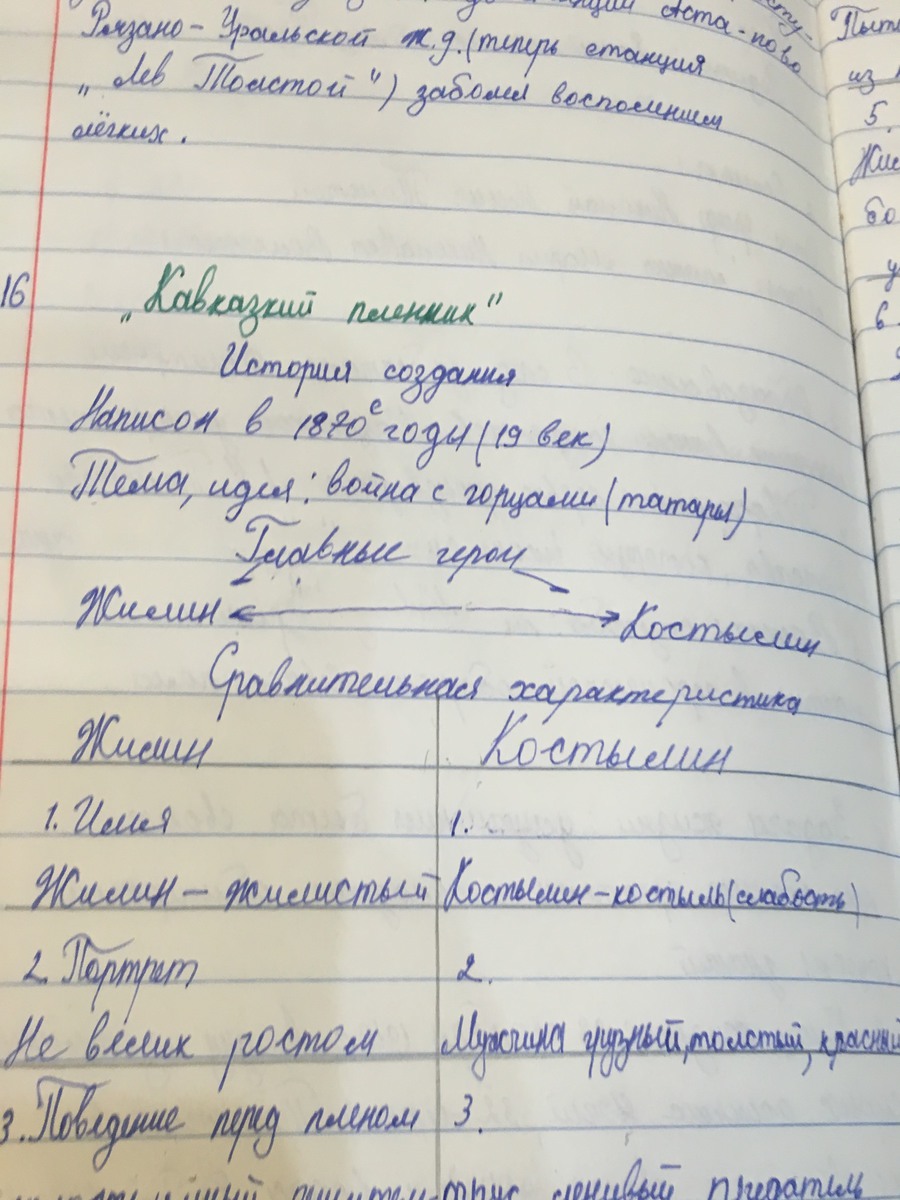 Аста-пово
Рязано-Уральской ж.д.(теперь станция
„Лев Толстой") заболел восполением
лёгких.
16
„Кавказкий пленник"
История создания
Написон в 1870е годы (19 век)
Тема, идея: война с горцами (татары)
Главные герои
Жилин Костылин
Сравнительная характеристика
Жилин Костылин
1. Имя 1.
Жилин – жилистый Костылин-костыль(слабость)
2. Портрет 2.
Не велик ростом Мужчина грузный, толстый, красный
3. Поведение перед пленом 3.
ленивый предатель
Пыт
из
5.
Жи
бо
у
6